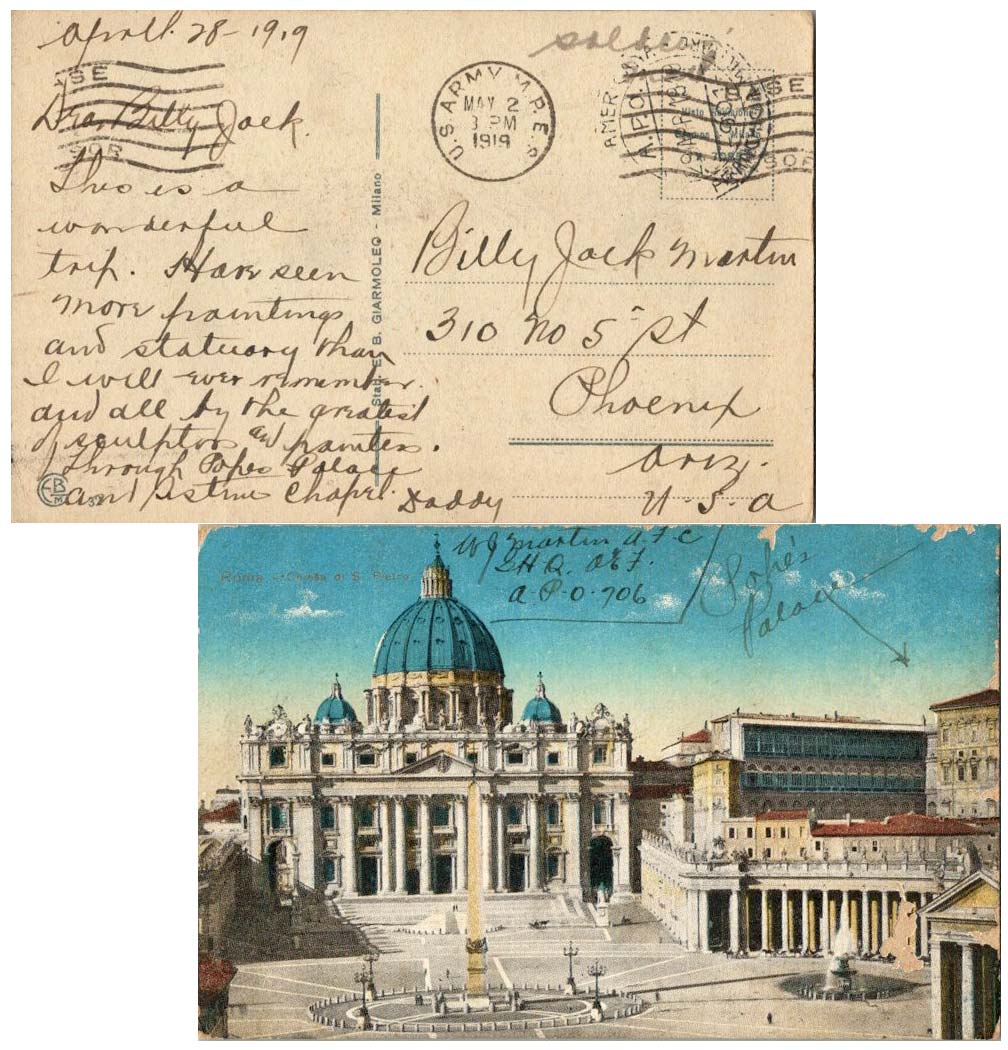 April. 28 - 1919
Dear Billy Jack.
This is a
wonderful
trip. Have seen
more paintings
and statuary than
I will ever remember.
and all by the greatest
of sculptors and painters.
Through Popes Palace
and Sistine Chapel. Daddy
EB
M
SE
SOR
Stab. E. B. GIARMOLEO - Milano
soldier's
U.S. ARMY M.P.E.S.
MAY 2
3 PM
1919
A.P.O.
BASE
SOR
Billy Jack Martin
310 No 5 St
Phoenix
Ariz.
U-S-A
Roma - Chiesa di S. Pietro
W J Martin A.F.C
G H Q. A E F.
A.P.O. 706
Pope's
Palace